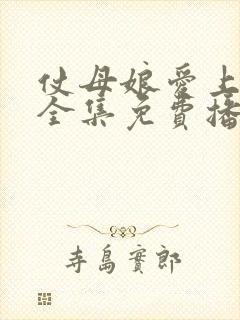 仗母娘愛上
全集免費播
寺島實郎